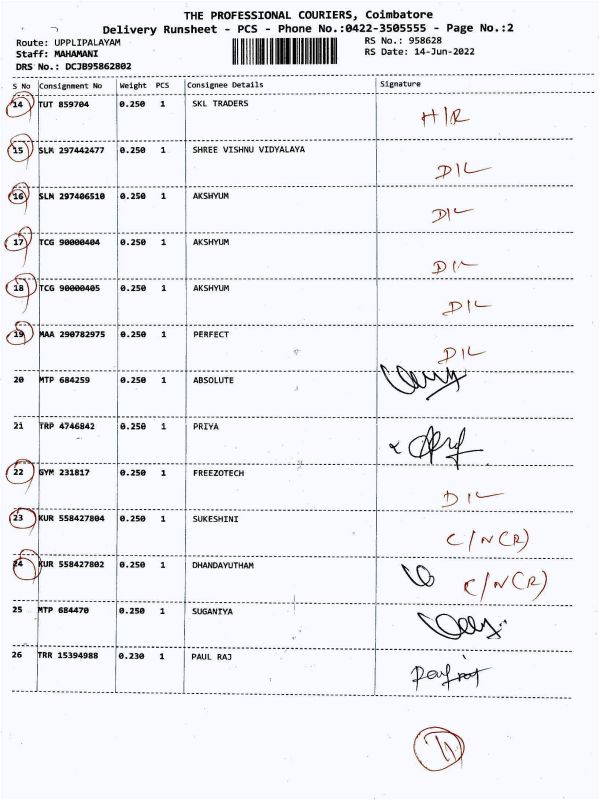 THE PROFESSIONAL COURIERS, Coimbatore
Delivery Runsheet - PCS - Phone No.:0422-3505555 - Page No.:2
Route: UPPLIPALAYAM RS No.: 958628
Staff: MAHAMANI RS Date: 14-Jun-2022
DRS No.: DCJB95862802
S No Consignment No Weight PCS Consignee Details Signature
14 TUT 859704 0.250 1 SKL TRADERS H/R
15 SLM 297442477 0.250 1 SHREE VISHNU VIDYALAYA D/L
16 SLM 297406510 0.250 1 AKSHYUM D/L
17 TCG 90000404 0.250 1 AKSHYUM D/L
18 TCG 90000405 0.250 1 AKSHYUM D/L
19 MAA 290782975 0.250 1 PERFECT D/L
20 MTP 684259 0.250 1 ABSOLUTE
21 TRP 4746842 0.250 1 PRIYA
22 GYM 231817 0.250 1 FREEZOTECH D/L
23 KUR 558427804 0.250 1 SUKESHINI C/N(R)
24 KUR 558427802 0.250 1 DHANDAYUTHAM C/N(R)
25 MTP 684470 0.250 1 SUGANIYA
26 TRR 15394988 0.230 1 PAUL RAJ